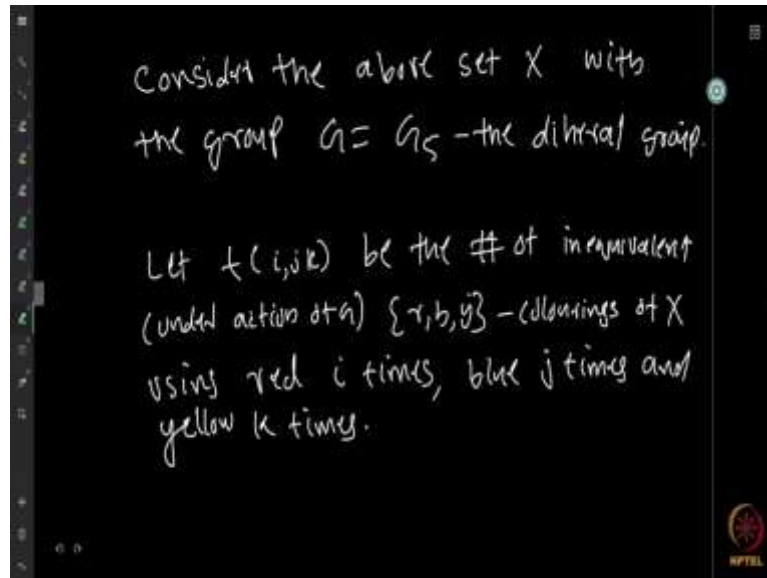 Consider the above set X with
the group G = G5 - the dihedral group.
Let t(i,j,k) be the # of inequivalent
(under action of G) {r,b,y} - colourings of X
using red i times, blue j times and
yellow k times.
NPTEL